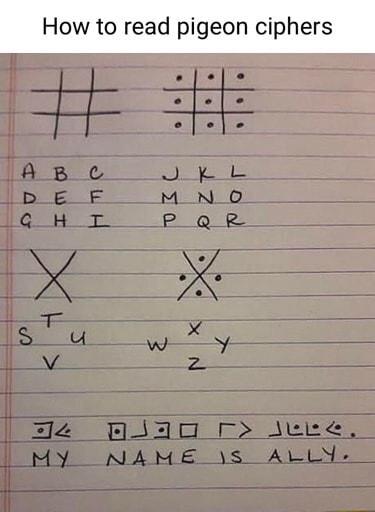 How to read pigeon ciphers
A B C J K L
D E F M N O
G H I P Q R
T X
S U W Y
V Z
MY NAME IS ALLY.